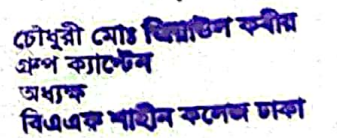 চৌধুরী মোঃ জিয়াউল কবীর
গ্রুপ ক্যাপ্টেন
অধ্যক্ষ
বিএএফ শাহীন কলেজ ঢাকা